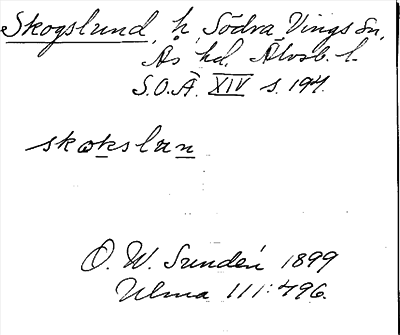 Skogslund, h, Södra Vings sn,
Ås hd. Älvsb. l.
S.O.Ä. XIV s. 194.
skokslan
O. W. Sundén 1899
Ulma 111:496.